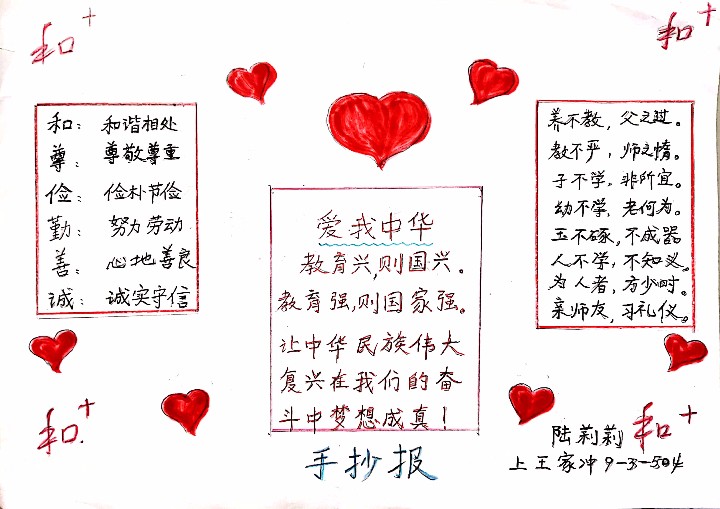 和+
和+
和：和谐相处
尊：尊敬尊重
俭：俭朴节俭
勤：努力劳动
善：心地善良
诚：诚实守信
爱我中华
教育兴,则国兴。
教育强,则国家强。
让中华民族伟大
复兴在我们的奋
斗中梦想成真！
养不教，父之过。
教不严，师之惰。
子不学，非所宜。
幼不学，老何为。
玉不琢，不成器
人不学，不知义。
为人者，方少时。
亲师友，习礼仪。
和+
手抄报
陆莉莉
和+
上王家冲9-3-504